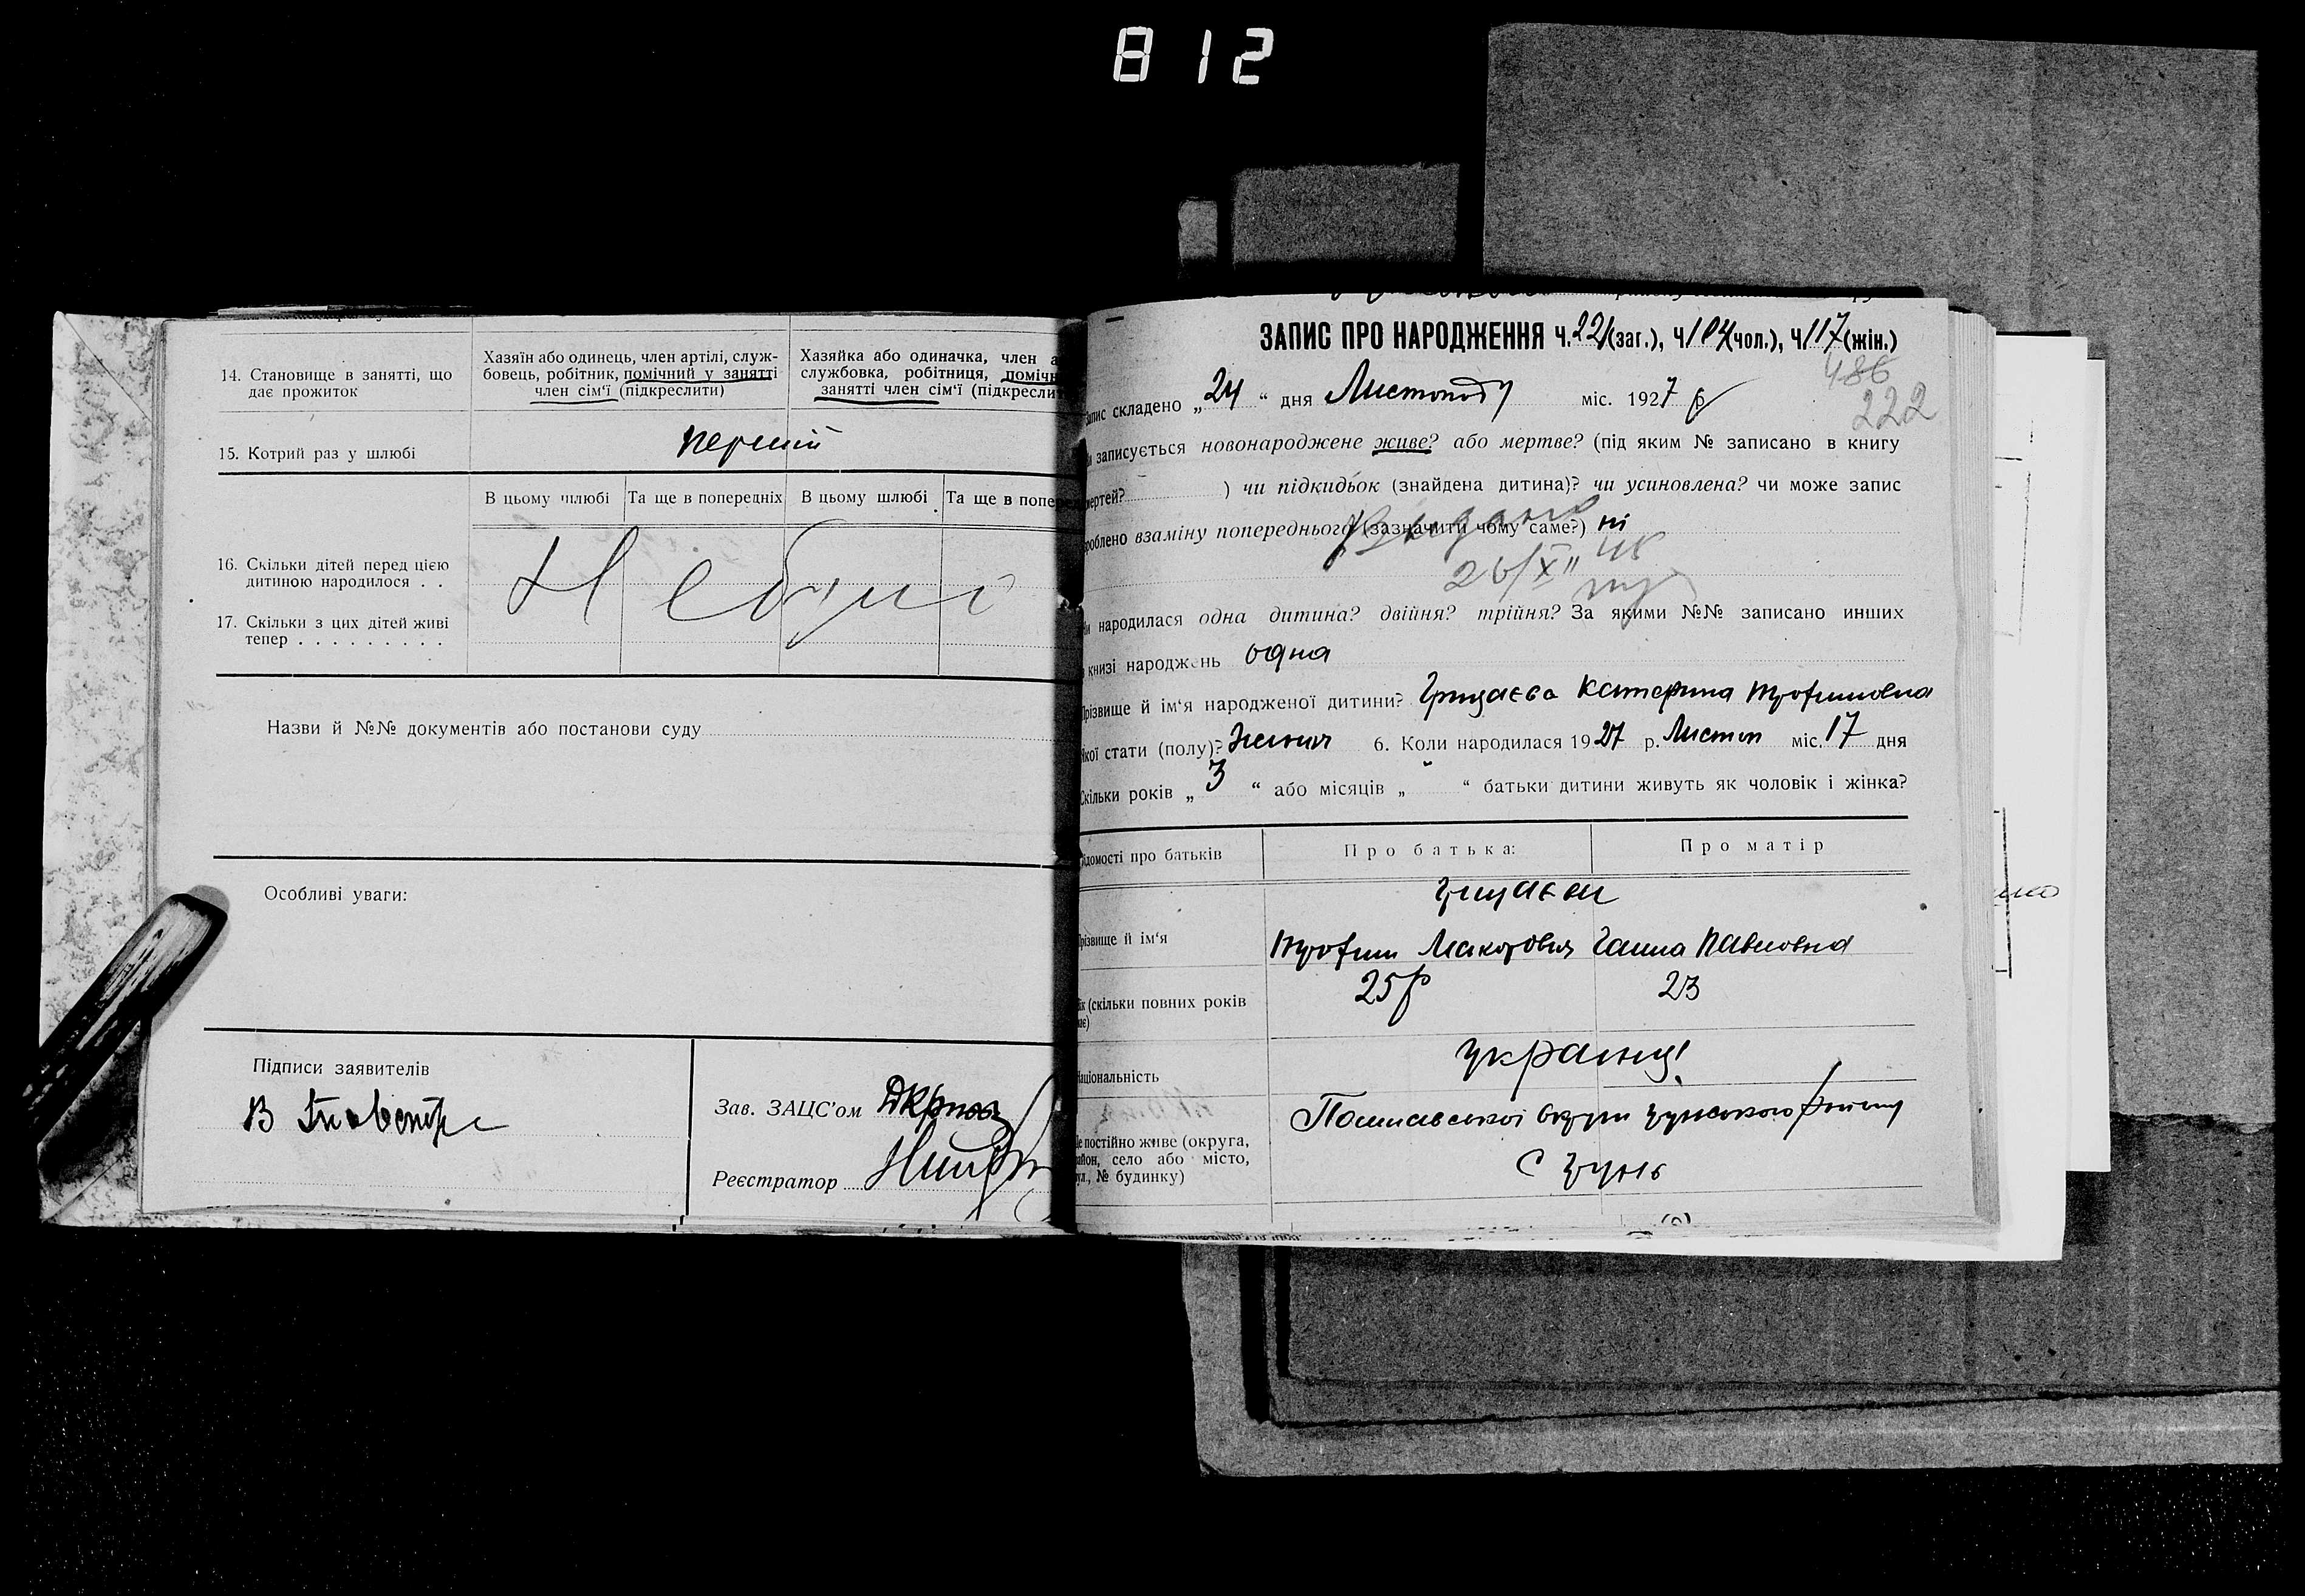 812
14. Становище в занятті, що
дає прожиток
Хазяїн або одинець, член артілі, служ-
бовець, робітник, помічний у занятті
член сім'ї (підкреслити)
Хазяйка або одиначка, член а
службовка, робітниця, помічн
занятті член сім'ї (підкресли
15. Котрий раз у шлюбі
перший
В цьому шлюбі
Та ще в попередніх
В цьому шлюбі
Та ще в попе
16. Скільки дітей перед цією
дитиною народилося . .
17. Скільки з цих дітей живі
тепер . . . . . . . . .
Не було
Назви й №№ документів або постанови суду
Особливі уваги:
Підписи заявителів
Зав. ЗАЦС'ом
Реєстратор
ЗАПИС ПРО НАРОДЖЕННЯ Ч. 221 (заг.), Ч 104 (чол.), Ч 117 (жін.)
486
222
Запис складено „ 24 “ дня Листопаду міс. 1927 р
записується новонароджене живе? або мертве? (під яким № записано в книгу
мертей? ) чи підкидьок (знайдена дитина)? чи усиновлена? чи може запис
роблено взаміну попереднього (зазначити чому саме?) ні
Видано
26/XII 45
народилася одна дитина? двійня? трійня? За якими №№ записано инших
книзі народжень одна
Прізвище й ім'я народженої дитини? Грицаєва Катерина Трофимовна
якої стати (полу)? Жіночи 6. Коли народилася 1927 р. Листоп міс. 17 дня
Скільки років „ 3 “ або місяців „ “ батьки дитини живуть як чоловік і жінка?
ідомості про батьків
Про батька:
Про матір
Грицаєви
різвище й ім'я
Трофим Макарович
Ганна Павловна
ік (скільки повних років
ає)
25 р
23
аціональність
українці
е постійно живе (округа,
айон, село або місто,
ул., № будинку)
Полтавської округи Зуївського району
с Зуївь